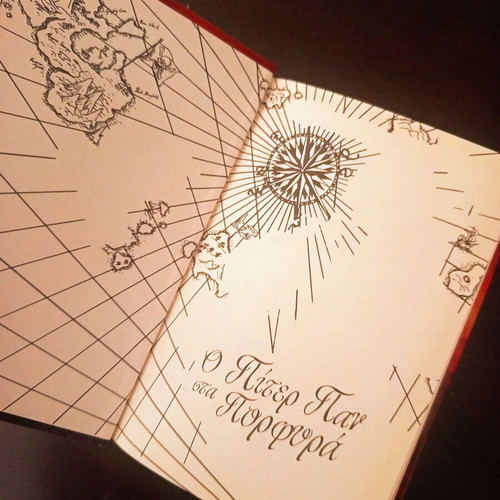 Ο Πίτερ Παν
στα
Πορφυρά